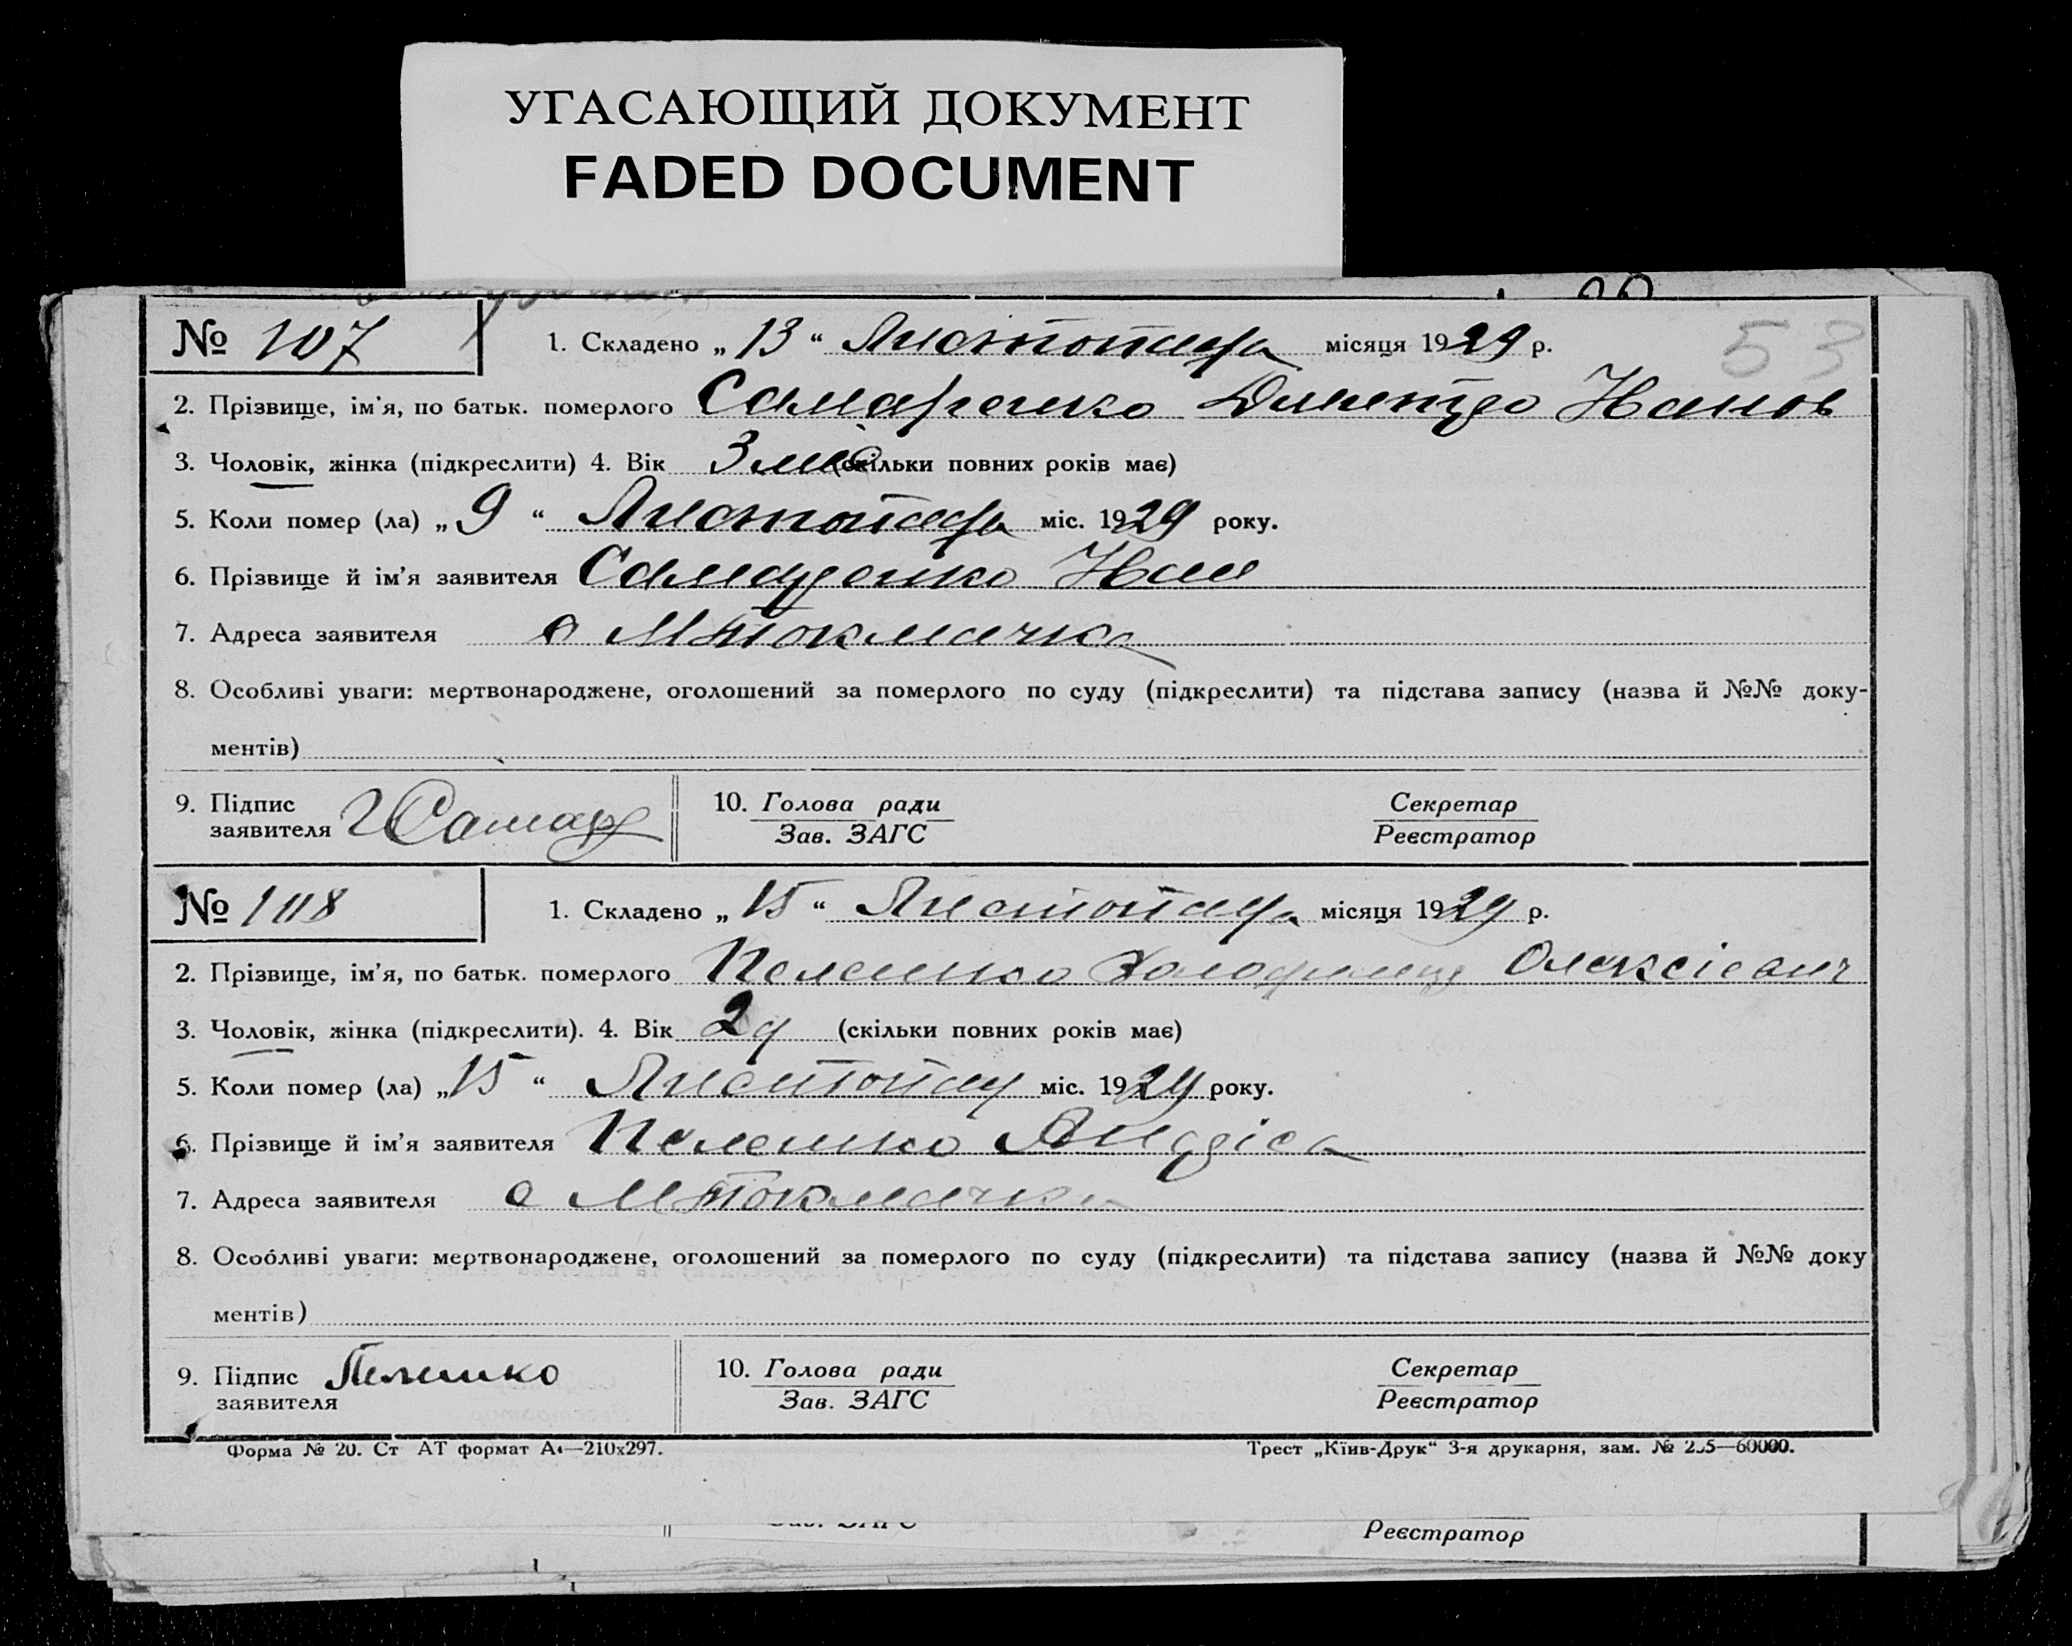 УГАСАЮЩИЙ ДОКУМЕНТ
FADED DOCUMENT
53
№ 107 1. Складено „13“ Листопада місяця 1929 р.
2. Прізвище, ім'я, по батьк. померлого Самаренко Дмитро Иванов
3. Чоловік, жінка (підкреслити) 4. Вік 3 міс (скільки повних років має)
5. Коли помер (ла) „9“ Листопада міс. 1929 року.
6. Прізвище й ім'я заявителя Самаренко Иван
7. Адреса заявителя с М Токмачка
8. Особливі уваги: мертвонароджене, оголошений за померлого по суду (підкреслити) та підстава запису (назва й №№ доку-
ментів)
9. Підпис заявителя Самар 10. Голова ради Секретар
Зав. ЗАГС Реєстратор
№ 108 1. Складено „15“ Листопада місяця 1929 р.
2. Прізвище, ім'я, по батьк. померлого Пелешко Володимир Олексієвич
3. Чоловік, жінка (підкреслити). 4. Вік 2 (скільки повних років має)
5. Коли помер (ла) „15“ Листопад міс. 1929 року.
6. Прізвище й ім'я заявителя Пелешко
7. Адреса заявителя с М Токмачка
8. Особливі уваги: мертвонароджене, оголошений за померлого по суду (підкреслити) та підстава запису (назва й №№ доку
ментів)
9. Підпис заявителя Пелешко 10. Голова ради Секретар
Зав. ЗАГС Реєстратор
Форма № 20. Ст АТ формат А4—210х297. Трест „Київ-Друк“ 3-я друкарня, зам. № —60000.
Реєстратор